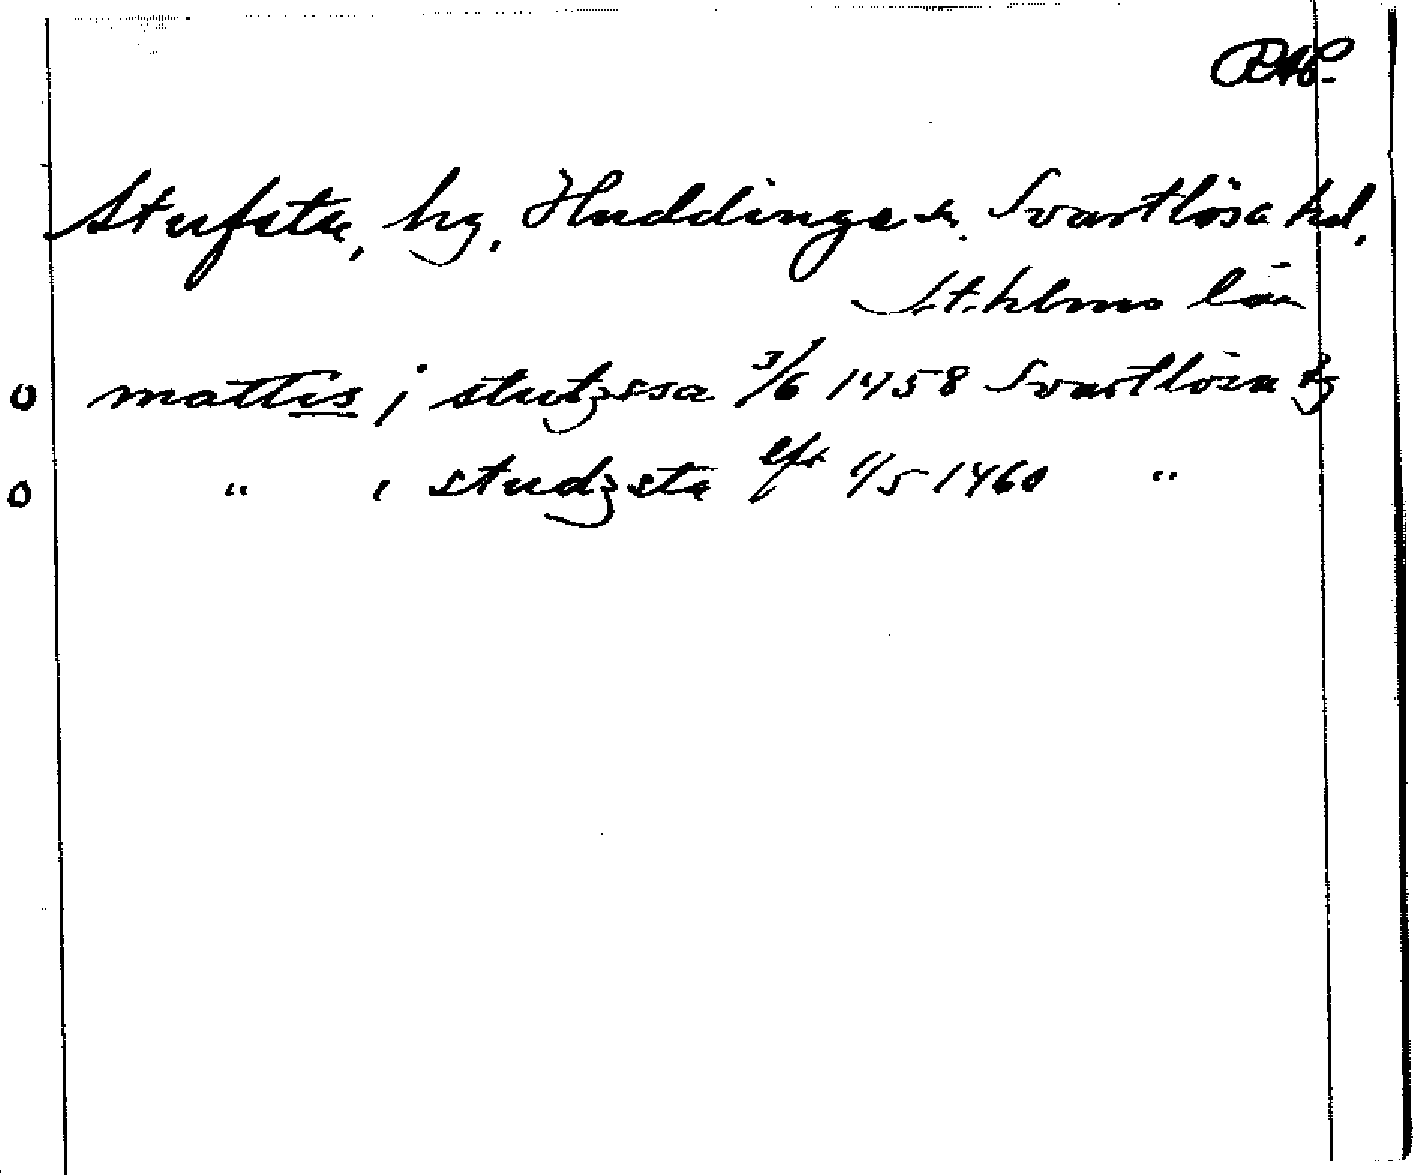 Stufsta, by, Huddinge sn. Svartlösa hd,
St.hlms län
0 mattis j stutzssa 3/6 1458 Svartlösa
0 " i studzsta eft 1/5 1460 "